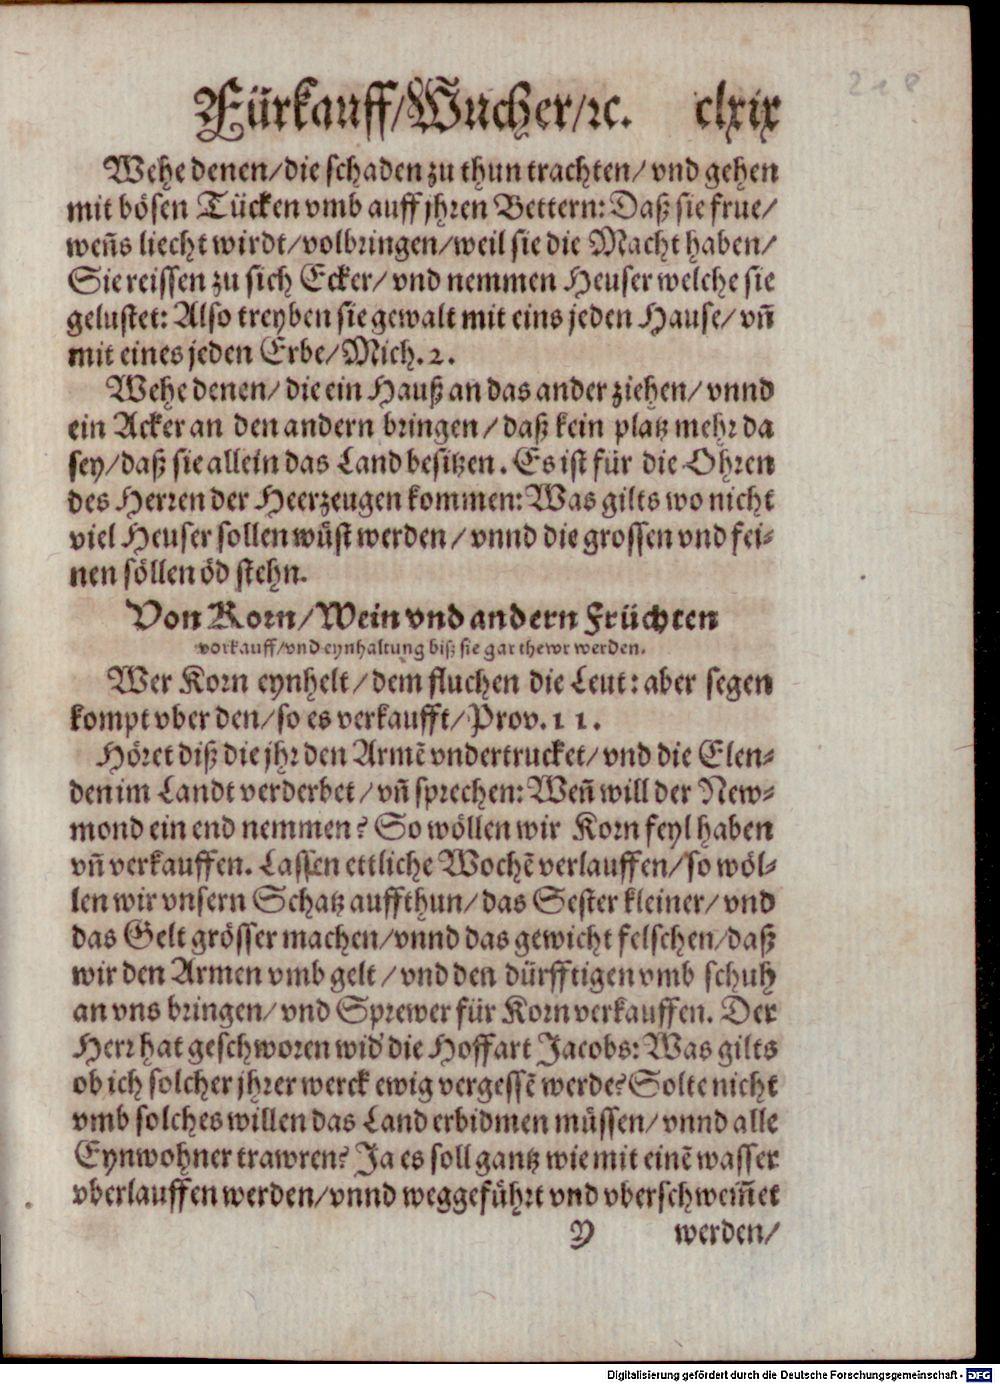 Fürkauff/Wucher/ꝛc. clxix
218
Wehe denen/die schaden zu thun trachten/ vnd gehen
mit bösen Tücken vmb auff jhren Bettern: Daß sie frue/
weñs liecht wirdt/volbringen/weil sie die Macht haben/
Sie reissen zu sich Ecker/ vnd nemmen Heuser welche sie
gelustet: Also treyben sie gewalt mit eins jeden Hause/ vñ
mit eines jeden Erbe/Mich. 2.
Wehe denen/ die ein Hauß an das ander ziehen/ vnnd
ein Acker an den andern bringen/ daß kein platz mehr da
sey/daß sie allein das Land besitzen. Es ist für die Ohren
des Herren der Heerzeugen kommen: Was gilts wo nicht
viel Heuser sollen wüst werden/ vnnd die grossen vnd fei-
nen söllen öd stehn.
Von Korn/Wein vnd andern Früchten
vorkauff/vnd eynhaltung biß sie gar thewr werden.
Wer Korn eynhelt/ dem fluchen die Leut: aber segen
kompt vber den/ so es verkaufft/ Prov. 11.
Höret diß die jhr den Armẽ vndertrucket/ vnd die Elen-
den im Landt verderbet/ vñ sprechen: Weñ will der New-
mond ein end nemmen? So wöllen wir Korn feyl haben
vñ verkauffen. Lassen ettliche Wochẽ verlauffen/ so wöl-
len wir vnsern Schatz auffthun/ das Sester kleiner/ vnd
das Gelt grösser machen/vnnd das gewicht felschen/daß
wir den Armen vmb gelt/ vnd den dürfftigen vmb schuh
an vns bringen/ vnd Sprewer für Korn verkauffen. Der
Herr hat geschworen wid' die Hoffart Jacobs: Was gilts
ob ich solcher jhrer werck ewig vergessẽ werde? Solte nicht
vmb solches willen das Land erbidmen müssen/ vnnd alle
Eynwohner trawren? Ja es soll gantz wie mit einẽ wasser
vberlauffen werden/vnnd weggeführt vnd vberschwem̃et
Y werden/
Digitalisierung gefördert durch die Deutsche Forschungsgemeinschaft - DFG